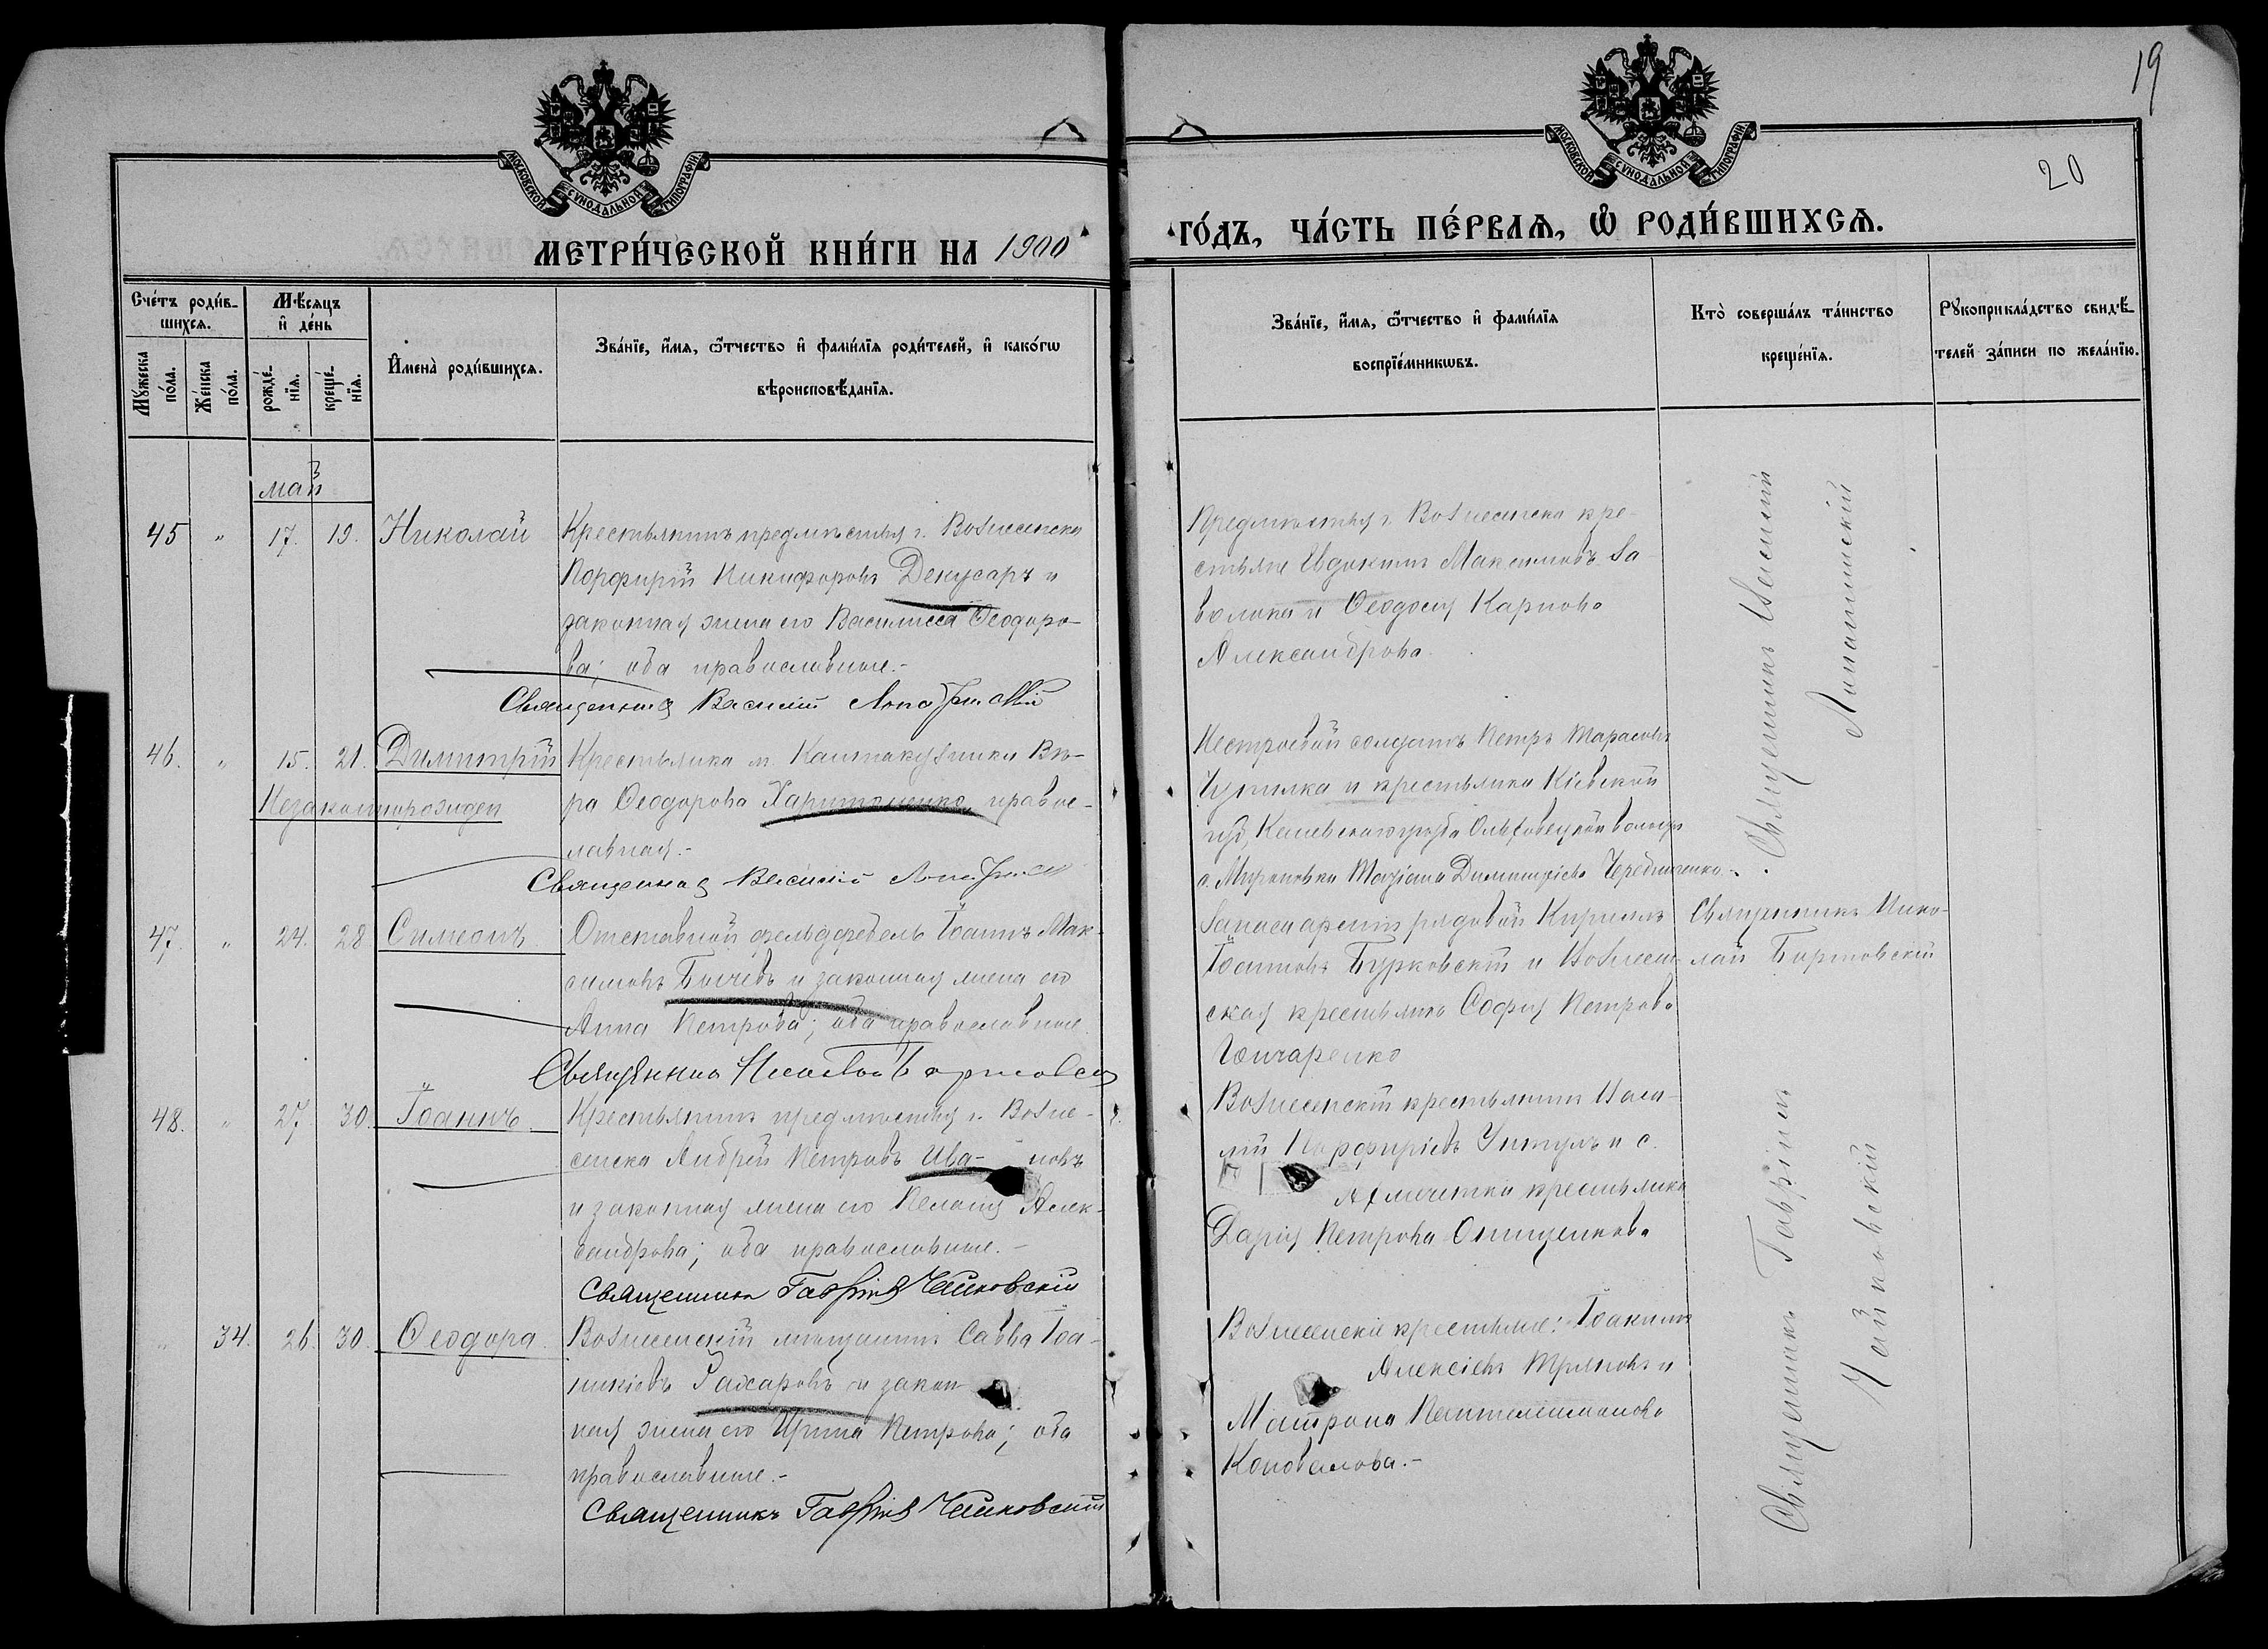 19
20
МОСКОВСКОЙ СѴНОДАЛЬНОЙ ТИПОГРАФІИ
МОСКОВСКОЙ СѴНОДАЛЬНОЙ ТИПОГРАФІИ
МЕТРИ́ЧЕСКОЙ КНИ́ГИ НА 1900
ГО́ДЪ, ЧА́СТЬ ПЕ́РВАѦ, Ѽ РОДИ́ВШИХСѦ.
Сче́тъ роди́в-
шихсѧ.
Мꙋ́жеска по́ла.
Же́нска по́ла.
Мѣ́сѧцъ
и҆ де́нь
рожде́-
нїѧ.
креще́-
нїѧ.
И҆мена̀ роди́вшихсѧ.
Зва́нїе, и҆́мѧ, ѻ҆́тчество и҆ фами́лїѧ роди́телей, и҆ како́гѡ
вѣроисповѣ́данїѧ.
Зва́нїе, и҆́мѧ, ѻ҆́тчество и҆ фами́лїѧ
воспрїе́мникѡвъ.
Кто̀ соверша́лъ та́инство
креще́нїѧ.
Рꙋкоприкла́дство свидѣ́-
телей за́писи по жела́нїю.
май
45 " 17. 19. Николай
Крестьянинъ предмѣстья г. Вознесенска
Порфирій Никифоровъ Декусаръ и
законная жена его Василисса Ѳеодоро-
ва; оба православные.-
Священникъ Василій Лопатинскій
Предмѣстья г. Вознесенска кре-
стьяне Евдокимъ Максимовъ За
волока и Ѳеодосія Карпова
Александрова.
Священникъ Василій
Лопатинскій
46. " 15. 21. Димитрій
Незаконнорожден
Крестьянка м. Кантакузинки Вѣ-
ра Ѳеодорова Харитоненко, правос-
лавная.-
Священникъ Василій
Нестроевой солдатъ Петръ Тарасовъ
и крестьянка Кіевской
губ,
Димитріева Чередниченко.-
47. " 24. 28 Симеонъ
Отставной фельдфебель Іоаннъ Мак-
симовъ Бычевъ и законная жена его
Анна Петрова; оба православные.
Священникъ
Запасн. арміи рядовой Кириллъ
Іоанновъ Бурковскій и Вознесен-
ская крестьянка Софія Петрова
Гончаренко
Священникъ Нико-
лай
48. " 27. 30. Іоаннъ.
Крестьянинъ предмѣстья г. Возне-
сенска Андрей Петровъ Ива- новъ
и законная жена его Пелагія Алек-
сандрова; оба православные.-
Священникъ Гавріилъ Чайковскій
Вознесенскій крестьянинъ
Порфиріевъ Унтулъ и с.
Ахмечетки крестьянка
Дарія Петрова Онищенкова
Священникъ Гавріилъ
Чайковскій
" 34. 26. 30. Ѳеодора
Вознесенскій мѣщанинъ Савва Іоа-
никіевъ Захаровъ и закон
ная жена его Ирина Петрова; оба
православные.-
Священникъ Гавріилъ Чайковскій
Вознесенскіе крестьяне: Іоакимъ
Алексіевъ и
Матрона Пантелеимонова
Коновалова.-